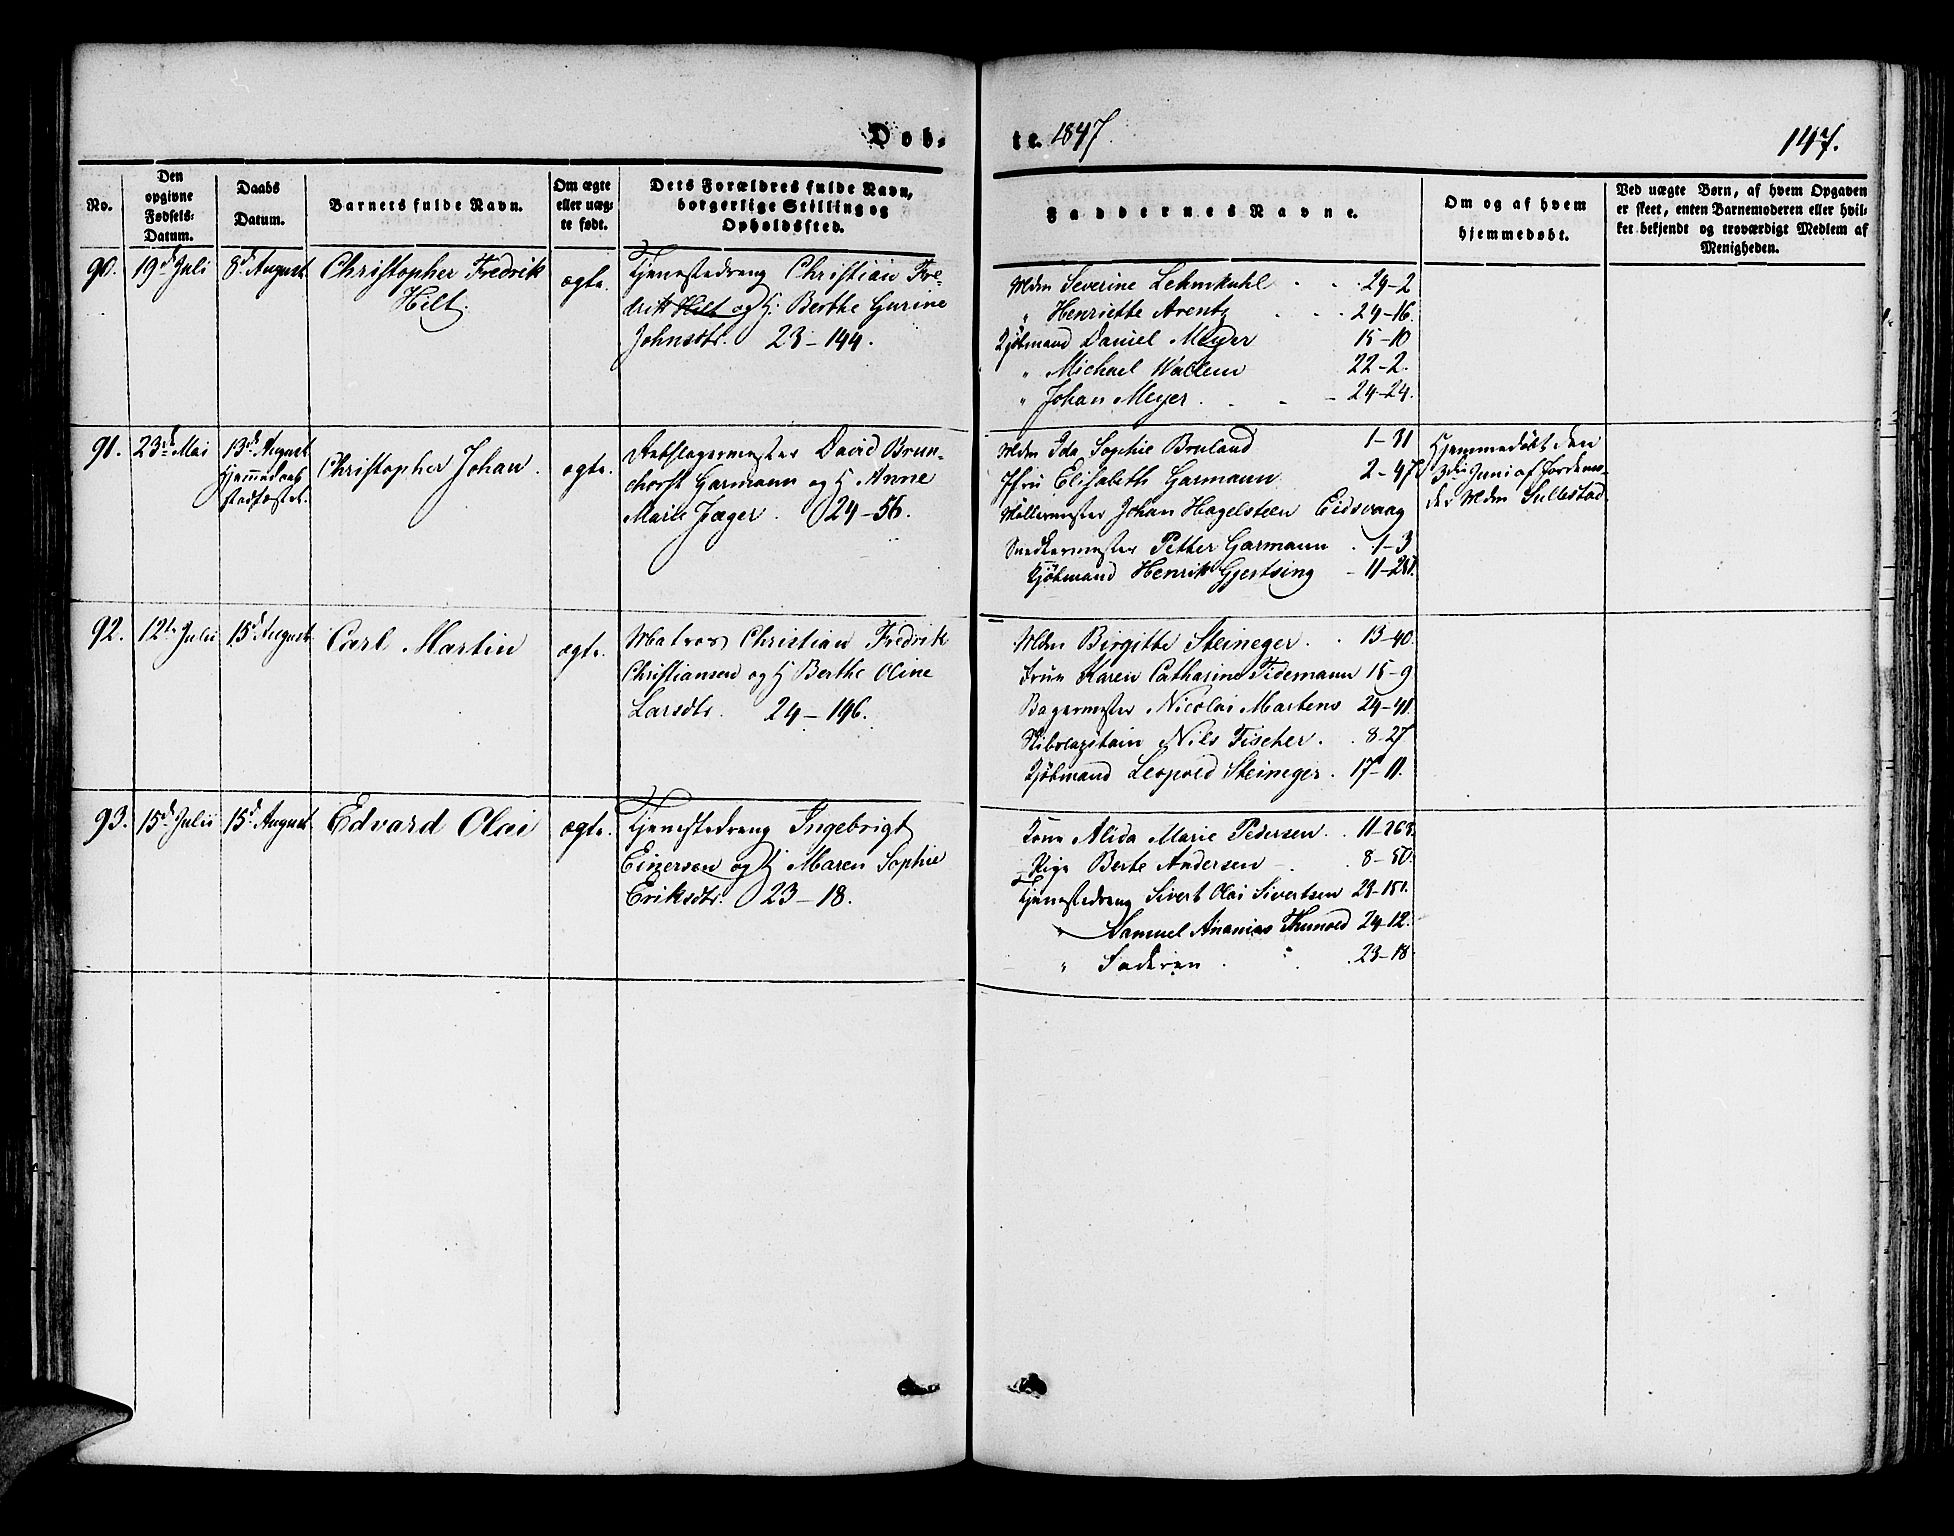 Døb-
te. 1847.
147.
No.
Den opgivne Fødsels-Datum.
Daabs Datum.
Barnets fulde Navn.
Om ægte eller uægte født.
Dets Forældres fulde Navn, borgerlige Stilling og Opholdssted.
Faddernes Navne.
Om og af hvem hjemmedøbt.
Ved uægte Børn, af hvem Opgaven er skeet, enten Barnemoderen eller hvilket bekjendt og troværdigt Medlem af Menigheden.
90. 19d Juli 8d August Christopher Fredrik
Hilt.
ægte.
Tjenestedreng Christian Fre-
drik Hilt og H. Berthe Gurine
Johnsdtr. 23-144.
Mdm Severine Lehmkuhl 29-2
" Henriette Arentz 24-16.
Kjøbmand Daniel Meyer 15-10
" Michael Wallem 22-2.
" Johan Meyer. 24-24.
91. 23d Mai 13d August
Hjemmedaab
stadfæstet.
Christopher Johan.
ægte.
David Brun-
chorst Garmann og H Anne
Marie Jæger. 24-56.
Mdm Ida Sophie Bruland 1-31
Jfru Elisabeth Garmann 2-47
Møllermester Johan Hagelsteen Eidsvaag
Snedkermester Petter Garmann 1-3
Kjøbmand Henrik Gjertsing 11-251.
Hjemmedøbt den
3die Juni af Jordemo-
der Mdm Sullestad
92. 12te Julii 15d August Carl Martin
ægte.
Matros Christian Fredrik
Christiansen og H Berthe Oline
Larsdtr. 24-196.
Mdm Birgitte Steineger. 13-40.
Frue Karen Catharine Tidemann 15-9
Bagermester Nicolai Martens 24-41.
Skibscapitain Nils Fischer. 8-27
Kjøbmand Leopold Steineger. 17-11.
93. 15d Julii 15d August Edvard Olai
ægte.
Tjenestedreng Ingebrigt
Einersen og H Maren Sophie
Eriksdtr. 23-18.
Kone Alida Marie Pedersen. 11-263.
Pige Berte Andersen 8-50.
Tjenestedreng Sivert Olai Sivertsen 23-151.
" Samuel Ananias Thunold 24-12.
" Faderen 23-18.